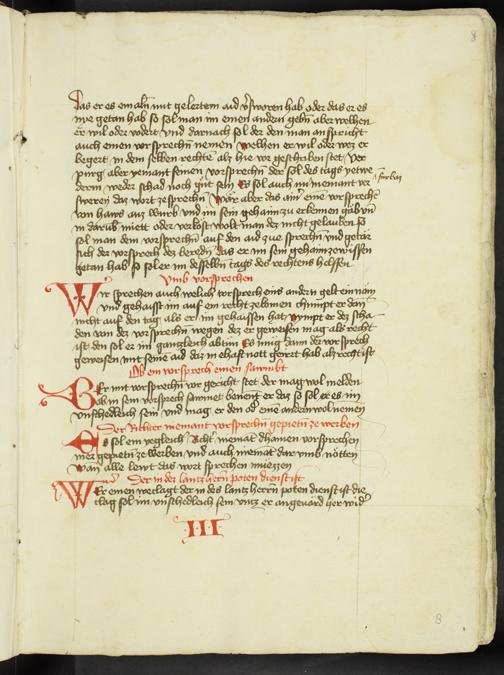 8
das er es emaln mit gelertem aid v̄sworen hab oder das er es
nye getan hab so sol man im einen andern gebn̄ aber welhen
er wil oder vodert vnd darnach sol der den man anspricht
auch einen vorsprechn̄ nemen welhen er wil oder wez er
begert in dem selben rechte alz hie vor geschriben stet
purg aber yemant seinen vorsprechn̄ der sol des tags
derm weder schad noch gut sein Es sol auch nu niemant ver
sweren daz wort zesprechn̄ wär aber das ain̄ eine vorspreche
von haws auz wurb vnd im sein gehaim zu erkennen gäb vn̄
in darub miett oder verkost wolt man dez nicht gelaubn̄ so
sol man dem vorsprechn̄ auf den aid zue sprechn̄ vnd
sich der vorsprech dez beredn̄ das er im sein gehaim
getan hab so sol er im desselbn̄ tags des rechtens helffen
vmb vorsprechen
Wir sprechen auch welich vorsprech eins andern gelt einnam
vnd gehaisst im auf ein recht zekomen chumpt er dan̄
nicht auf den tag als er im gehaissen hat kumpt er dez scha
den von dez vorsprechn̄ wegen dez er geweisen mag als recht
ist den sol er im gantzleich abtun Es mug dan̄ der vorsprech
geweisen mit seine aid daz in ehaft nott geirret hab als recht ist
Ob ein vorsprech einen sawmbt
Wer mit vorsprechn̄ vor gericht stet der mag wol melden
ob in sein vorsprech sawmet benent er daz so sol er es im
vnschedleich sein vnd mag er den ob eine andern wol nemen
Der Richter niemant vorsprechn̄ gepietn̄ ze werben
Es sol ein yegleich Richt̄ niemāt dhainen vorsprechen
mer gepietn̄ ze werben vnd auch niemāt dar vmb nötten
wan alle lewt das wort sprechen muezzen
Der in dez lantzherrn̄ poten dienst ist
Wer einen verclagt der in des lantzherrn̄ poten dienst ist die
clag sol im vnschedleich sein vntz er her wid̄
III
8